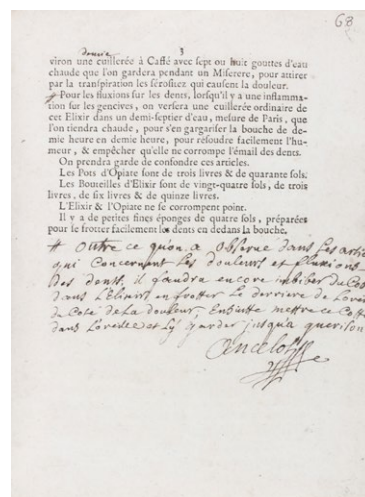 63
demie
3
viron une cuillerée à Caffé avec sept ou huit gouttes d'eau
chaude que l'on gardera pendant un Miserere, pour attirer
par la transpiration les sérosités qui causent la douleur.
# Pour les fluxions sur les dents, lorsqu'il y a une inflamma-
tion sur les gencives, on versera une cuillerée ordinaire de
cet Elixir dans un demi-septier d'eau, mesure de Paris, que
l'on tiendra chaude, pour s'en gargariser la bouche de de-
mie heure en demie heure, pour résoudre facilement l'hu-
meur, & empêcher qu'elle ne corrompe l'émail des dents.
On prendra garde de confondre ces articles.
Les Pots d'Opiate sont de trois livres & de quarante sols.
Les Bouteilles d'Elixir sont de vingt-quatre sols, de trois
livres, de six livres & de quinze livres.
L'Elixir & l'Opiate ne se corrompent point.
Il y a de petites fines éponges de quatre sols, préparées
pour se frotter facilement les dents en dedans la bouche.
# outre ce qu'on a observé dans les artic
qui concernent Les douleurs et fluxions
des dents, il faudra encore imbiber du Cot
dans L'Elixir en frotter Le derriere de Loreil
du Coté de La douleur, Ensuitte mettre ce Cott
dans Loreille et Ly garder jusqu'a guerison
Ancelot